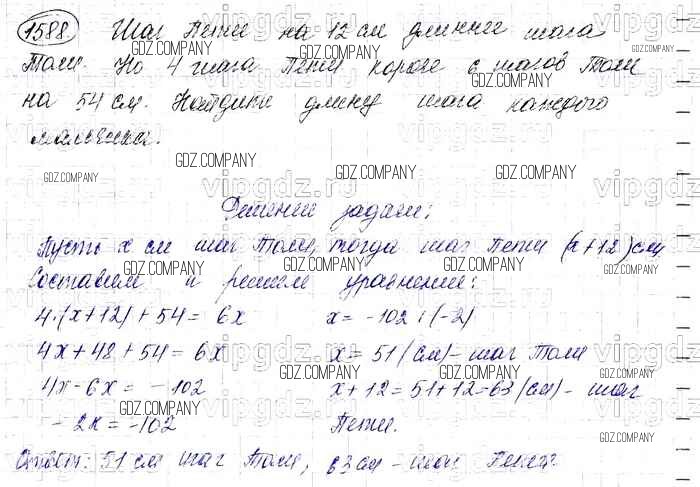 1588. Шаг Пети на 12 см длиннее шага
Толи. Но 4 шага Пети короче 6 шагов Толи
на 54 см. Найдите длину шага каждого
мальчика.
Решение задачи:
Пусть x см шаг Толи, тогда шаг Пети (x+12) см
Составим и решим уравнение:
4·(x+12)+54=6x
4x+48+54=6x
4x-6x=-102
-2x=-102
x=-102:(-2)
x=51 (см)- шаг Толи
x+12=51+12=63 (см)- шаг
Пети.
Ответ: 51 см шаг Толи, 63 см - шаг Пети
GDZ.COMPANY
vipgdz.ru